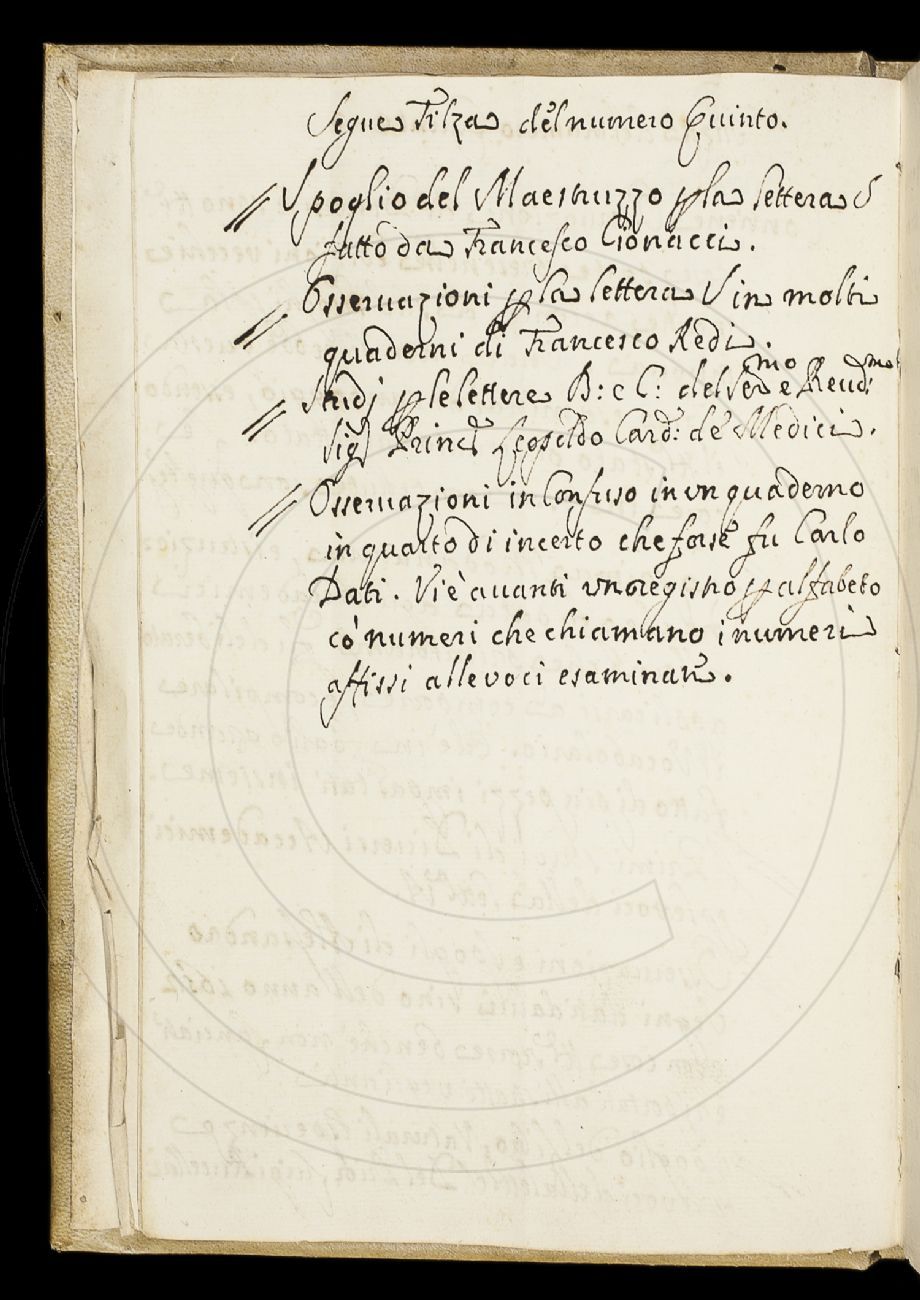 Segue Filza del numero Quinto.
// Spoglio del Maestruzzo p la lettera S
fatto da Francesco Cionacci.
// Osseruazioni p la lettera S in molti
quaderni di Francesco Redi.
// Studj p le lettere B: e C: del Ser.mo e Reud:mo
Sig.r Princ.e Leopoldo Card: de Medici.
// Osseruazioni in Confuso in vn quaderno
in quarto di incerto che forse fu Carlo
Dati. Vi è auanti vn registro p alfabeto
có numeri che chiamano i numeri
affissi alle voci esaminate.